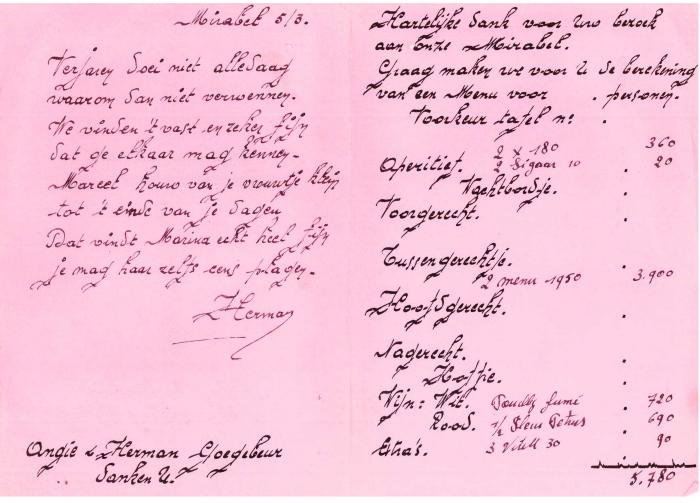 Mirabel 5/3.
Verjaren doei niet alledaag
waarom dan niet verwennen.
We vinden 't vast en zeker fijn
dat ge elkaar mag kennen.
Marcel houw van je vrouwtje klein
tot 't einde van je dagen
Dat vindt Marina echt heel fijn
je mag haar zelfs eens plagen.
Herman
Angie & Herman Goegebeur
danken U.
Hartelijke dank voor Uw bezoek
aan Onze Mirabel.
Graag maken we voor U de berekening
van een Menu voor . personen.
Voorkeur tafel nr .
2 x 180 360
Aperitief. 2 Sigaar 10 . 20
Wachtbordje.
Voorgerecht. .
Tussengerechtje. .
2 menu 1950 3.900
Hoofdgerecht. .
Nagerecht. .
Koffie. .
Wijn: Wit. Pouilly fumé . 720
Rood. 1/2 Fleur Petrus . 690
Extra's. 3 Vitell 30 . 90
5.780